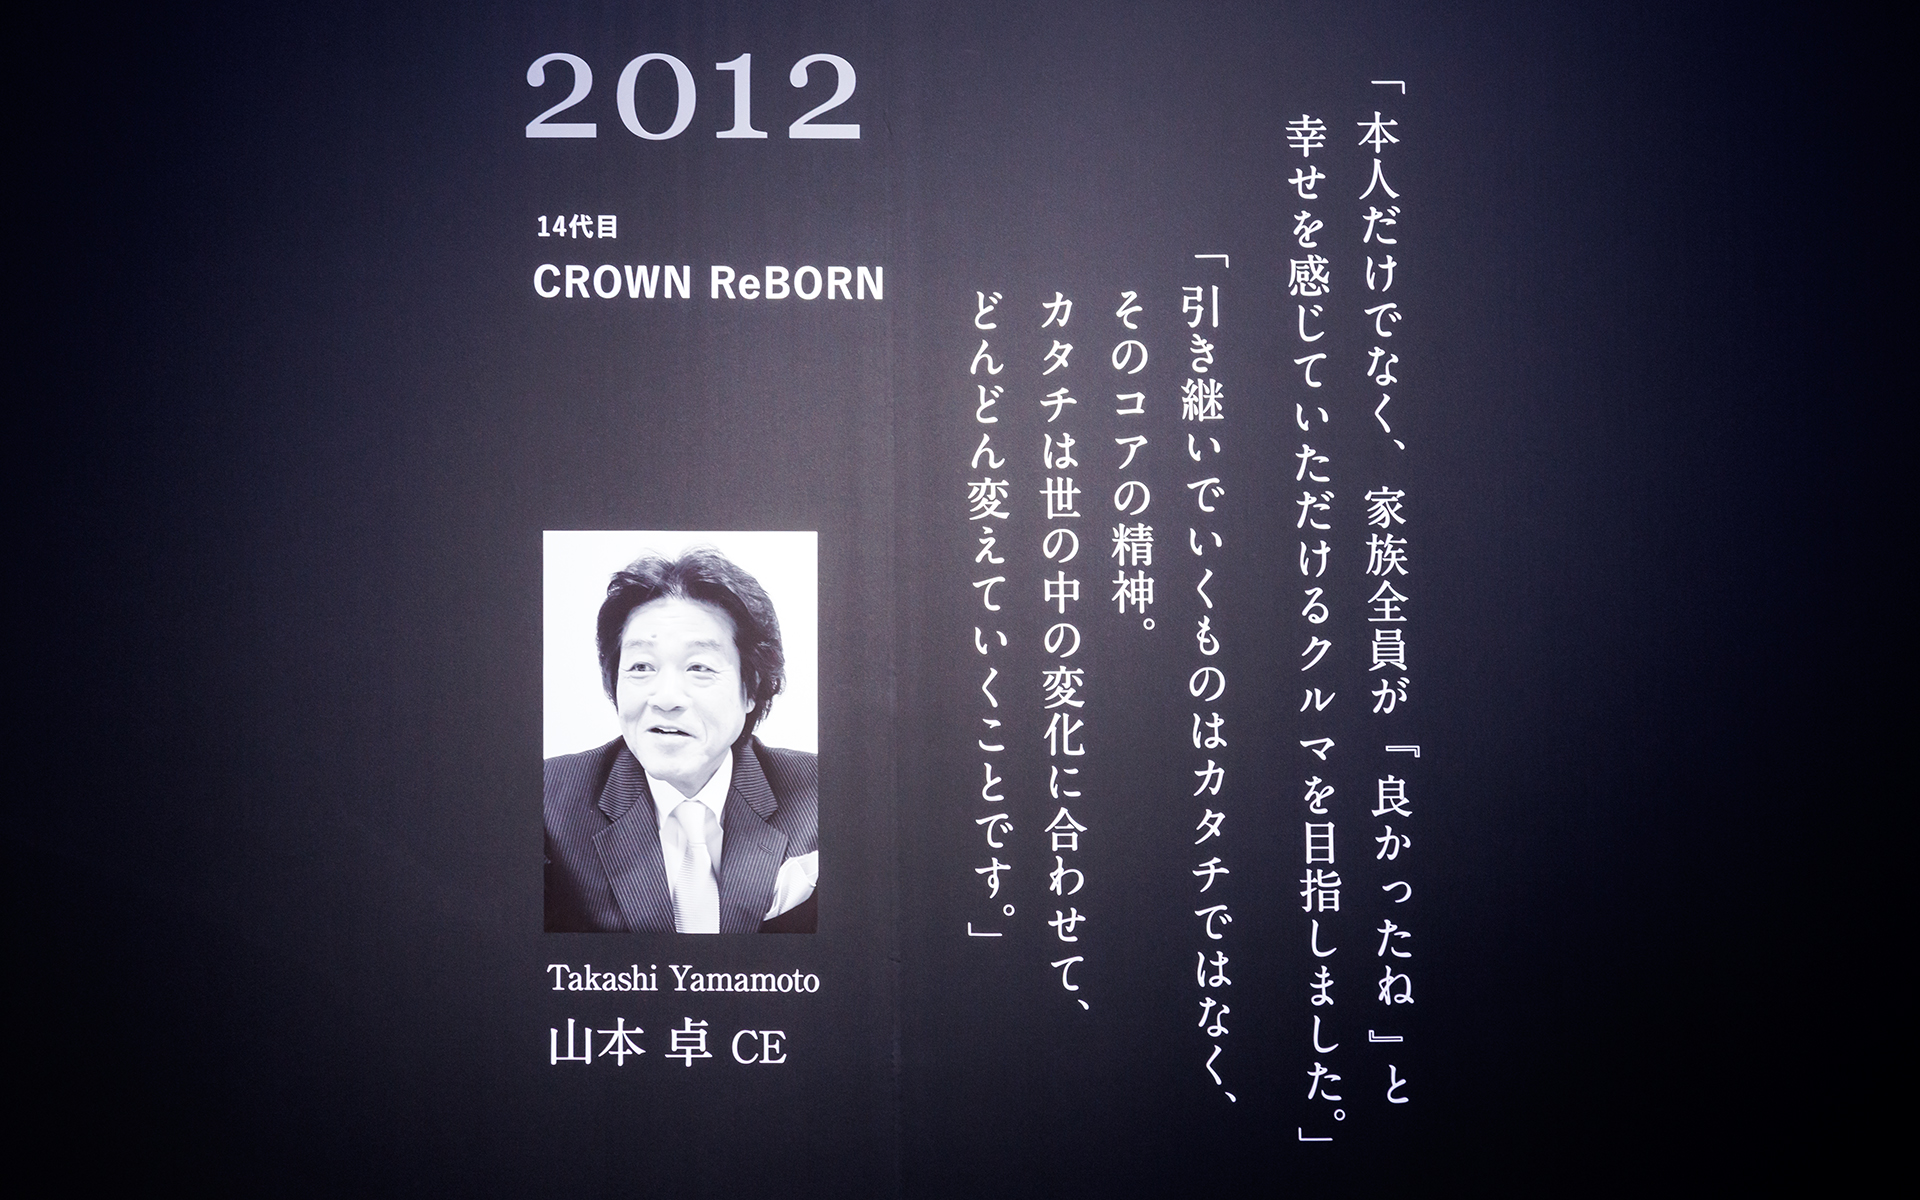 2012
14代目
CROWN ReBORN
「本人だけでなく、家族全員が『良かったね』と
幸せを感じていただけるクルマを目指しました。」
「引き継いでいくものはカタチではなく、
そのコアの精神。
カタチは世の中の変化に合わせて、
どんどん変えていくことです。」
Takashi Yamamoto
山本 卓 CE